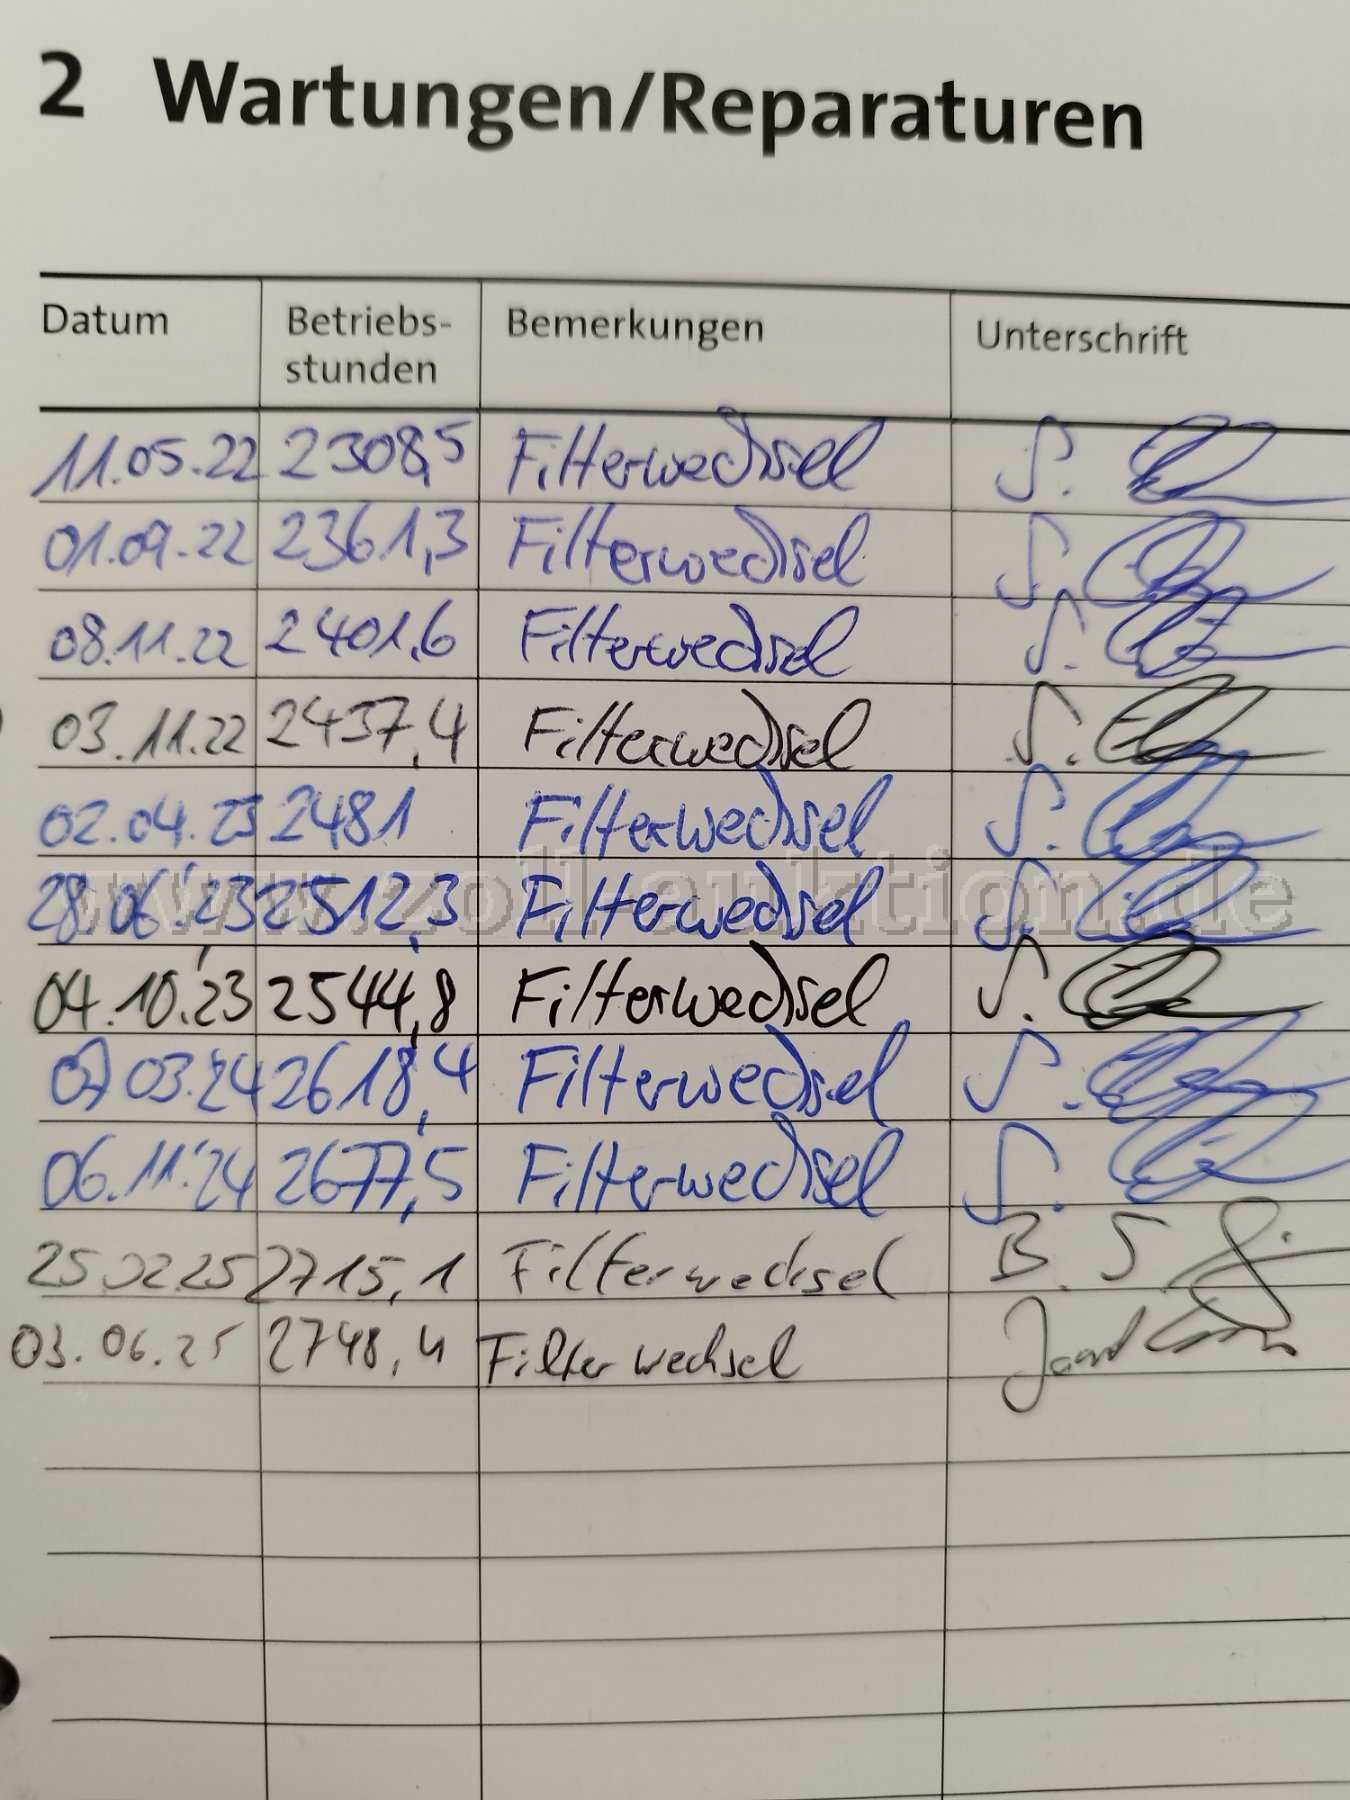 2 Wartungen/Reparaturen
Datum Betriebs- Bemerkungen Unterschrift
stunden
11.05.22 2308,5 Filterwechsel S.
01.09.22 2361,3 Filterwechsel S.
08.11.22 2401,6 Filterwechsel S.
03.11.22 2437,4 Filterwechsel S.
02.04.23 2481 Filterwechsel S.
28.06.'23 2512,3 Filterwechsel S.
www.zoll-auktion.de
04.10.'23 2544,8 Filterwechsel S.
03.'24 2618,4 Filterwechsel S.
06.11.'24 2677,5 Filterwechsel S.
25.02.25 2715,1 Filterwechsel B. S
03.06.25 2748,4 Filterwechsel